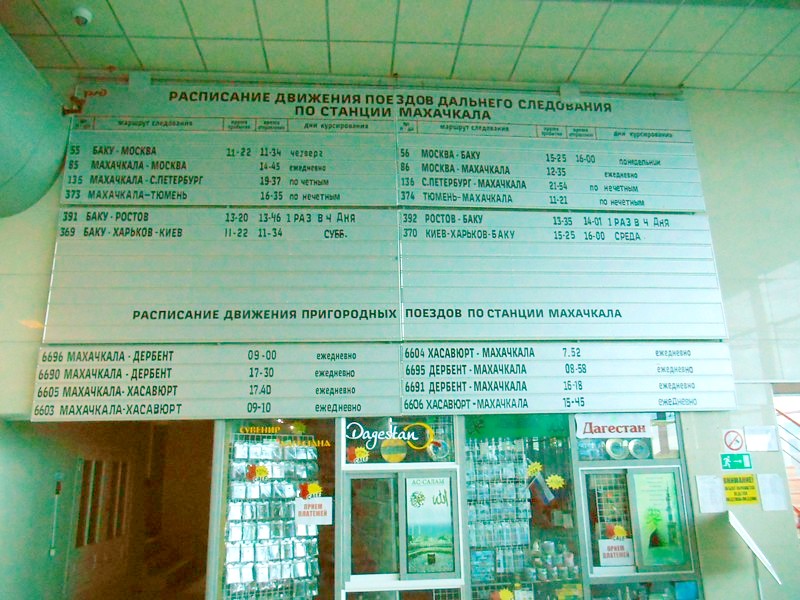 ржд
РАСПИСАНИЕ ДВИЖЕНИЯ ПОЕЗДОВ ДАЛЬНЕГО СЛЕДОВАНИЯ
ПО СТАНЦИИ МАХАЧКАЛА
маршрут следования время прибытия время отправления дни курсирования
55 БАКУ-МОСКВА 11-22 11-34 четверг
85 МАХАЧКАЛА-МОСКВА 14-45 ежедневно
136 МАХАЧКАЛА-С.ПЕТЕРБУРГ 19-37 по четным
373 МАХАЧКАЛА-ТЮМЕНЬ 16-35 по нечетным
391 БАКУ-РОСТОВ 13-20 13-46 1 РАЗ В 4 ДНЯ
369 БАКУ-ХАРЬКОВ-КИЕВ 11-22 11-34 СУББ.
маршрут следования время прибытия время отправления дни курсирования
56 МОСКВА-БАКУ 15-25 16-00 понедельник
86 МОСКВА-МАХАЧКАЛА 12-35 ежедневно
136 С.ПЕТЕРБУРГ-МАХАЧКАЛА 21-54 по нечетным
374 ТЮМЕНЬ-МАХАЧКАЛА 11-21 по нечетным
392 РОСТОВ-БАКУ 13-35 14-01 1 РАЗ В 4 ДНЯ
370 КИЕВ-ХАРЬКОВ-БАКУ 15-25 16-00 СРЕДА
РАСПИСАНИЕ ДВИЖЕНИЯ ПРИГОРОДНЫХ ПОЕЗДОВ ПО СТАНЦИИ МАХАЧКАЛА
6696 МАХАЧКАЛА-ДЕРБЕНТ 09-00 ежедневно
6690 МАХАЧКАЛА-ДЕРБЕНТ 17-30 ежедневно
6605 МАХАЧКАЛА-ХАСАВЮРТ 17.40 ежедневно
6603 МАХАЧКАЛА-ХАСАВЮРТ 09-10 ежедневно
6604 ХАСАВЮРТ-МАХАЧКАЛА 7.52 ежедневно
6695 ДЕРБЕНТ-МАХАЧКАЛА 08-58 ежедневно
6691 ДЕРБЕНТ-МАХАЧКАЛА 16-18 ежедневно
6606 ХАСАВЮРТ-МАХАЧКАЛА 15-45 ежедневно
СУВЕНИР
Dagestan
Дагестан
АС-САЛАМ
ПРИЕМ
ПЛАТЕЖЕЙ
ПРИЕМ
ПЛАТЕЖЕЙ
ВНИМАНИЕ!